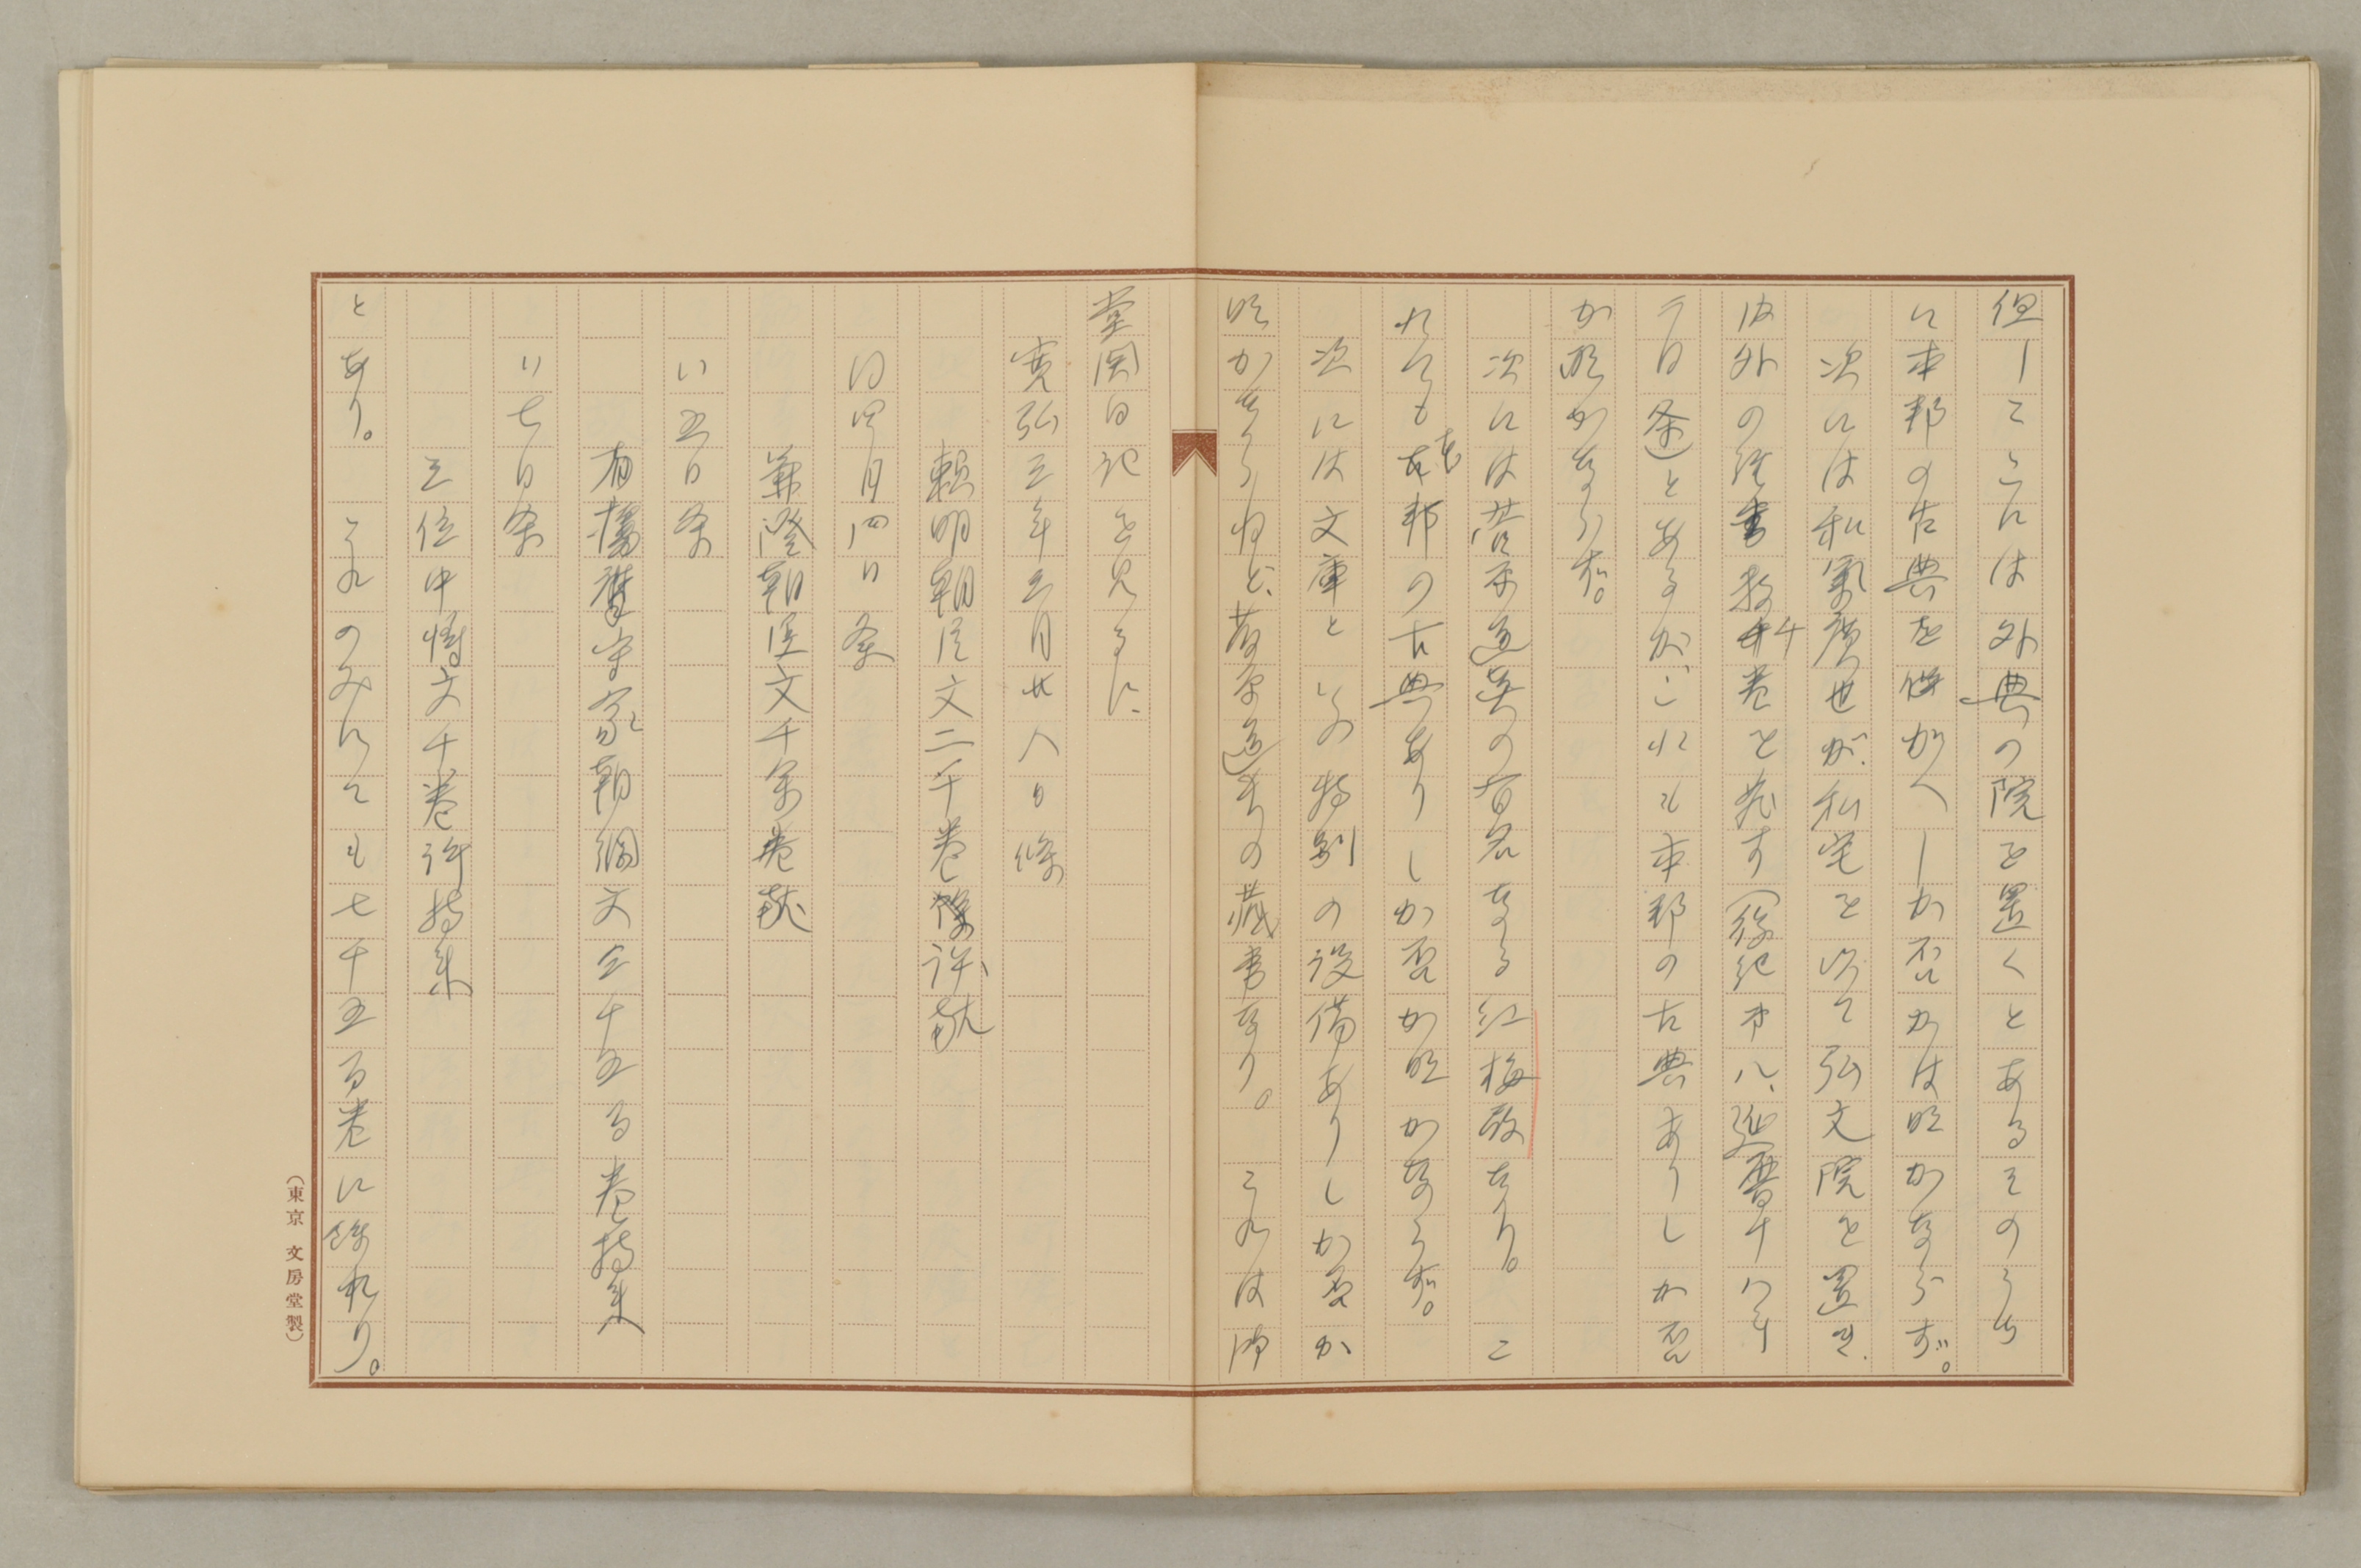 但しこゝには外典の院を置くとあるそのうち
に本邦の古典を備がへしか否かは明かならず。
次には和氣廣世が、私宅を以て弘文院を置き、
内外の経書数千巻を蔵す（後紀巻八、延暦十八年
二月条）とあるが、これも本邦の古典ありしか否
か明かならず。
次には菅原道真の有名なる紅梅殿なり。こ
れにも本邦の古典ありしか否か明かならず。
次には文庫といふ特別の設備ありしか否か
明かならねど、藤原道長の蔵書なり。これは御
堂関白記を見るに、
寛弘三年三月廿八日條
頼明朝臣文二千巻許献
同四月四日条
兼澄朝臣文千余巻献
〃五日条
有播磨守家朝綱文三千五百巻持来
〃七日条
三位中将文千巻許持来
とあり。これのみにても七千五百巻に餘れり。
（東京 文房堂製）